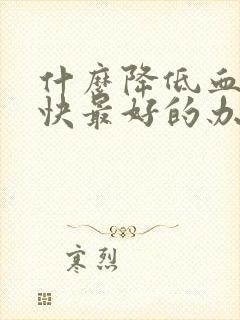 什麽降低血
快最好的办
寒烈